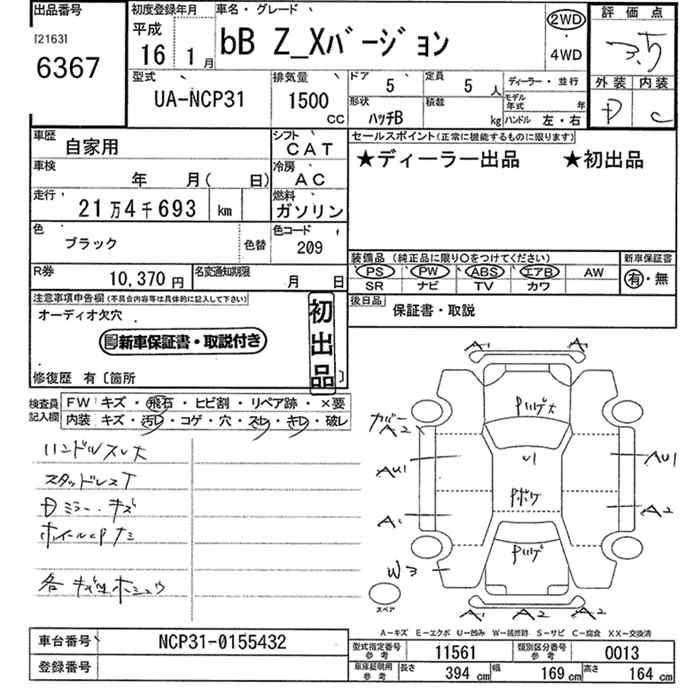 出品番号 初度登録年月 車名・グレード 評価点
[2163] 平成 2WD
6367 16 1月 bB Z_Xバージョン 4WD 3.5
型式 排気量 ドア 5 定員 5人 ディーラー・並行 外装 内装
UA-NCP31 1500 CC 形状 ハッチB 積載 kg モデル年式 年 D C
ハンドル 左・右
車歴 自家用 シフト CAT セールスポイント(正常に機能するものに限ります)
車検 年 月( 日) 冷房 AC ★ディーラー出品 ★初出品
走行 21万4千693 km 燃料 ガソリン
色 ブラック 色替 色コード 209
装備品 (純正品に限り○をつけてください) 新車保証書
PS PW ABS エアB AW 有・無
SR ナビ TV カワ
R券 10,370円 名変通知期限 月 日
後日品 保証書・取説
注意事項申告欄(不具合内容等は具体的に記入して下さい)
オーディオ欠穴
新車保証書・取説付き
初出品
修復歴 有〔箇所 〕
検査員記入欄 FW キズ・飛石・ヒビ割・リペア跡・×要
内装 キズ・汚レ・コゲ・穴・スレ・キレ・破レ
ハンドルスレ大
スタッドレスT
Dミラー・キズ
A1 A1
カバー
A2
AU1 U1 AU1
A1 A2
W3
スペア
A1 A2 A2
A-キズ E-エクボ U-凹み W-補修跡 S-サビ C-腐食 XX-交換済
車台番号 NCP31-0155432
登録番号
型式指定番号 参考 11561 類別区分番号 参考 0013
車庫証明用 参考 長さ 394 cm 幅 169 cm 高さ 164 cm